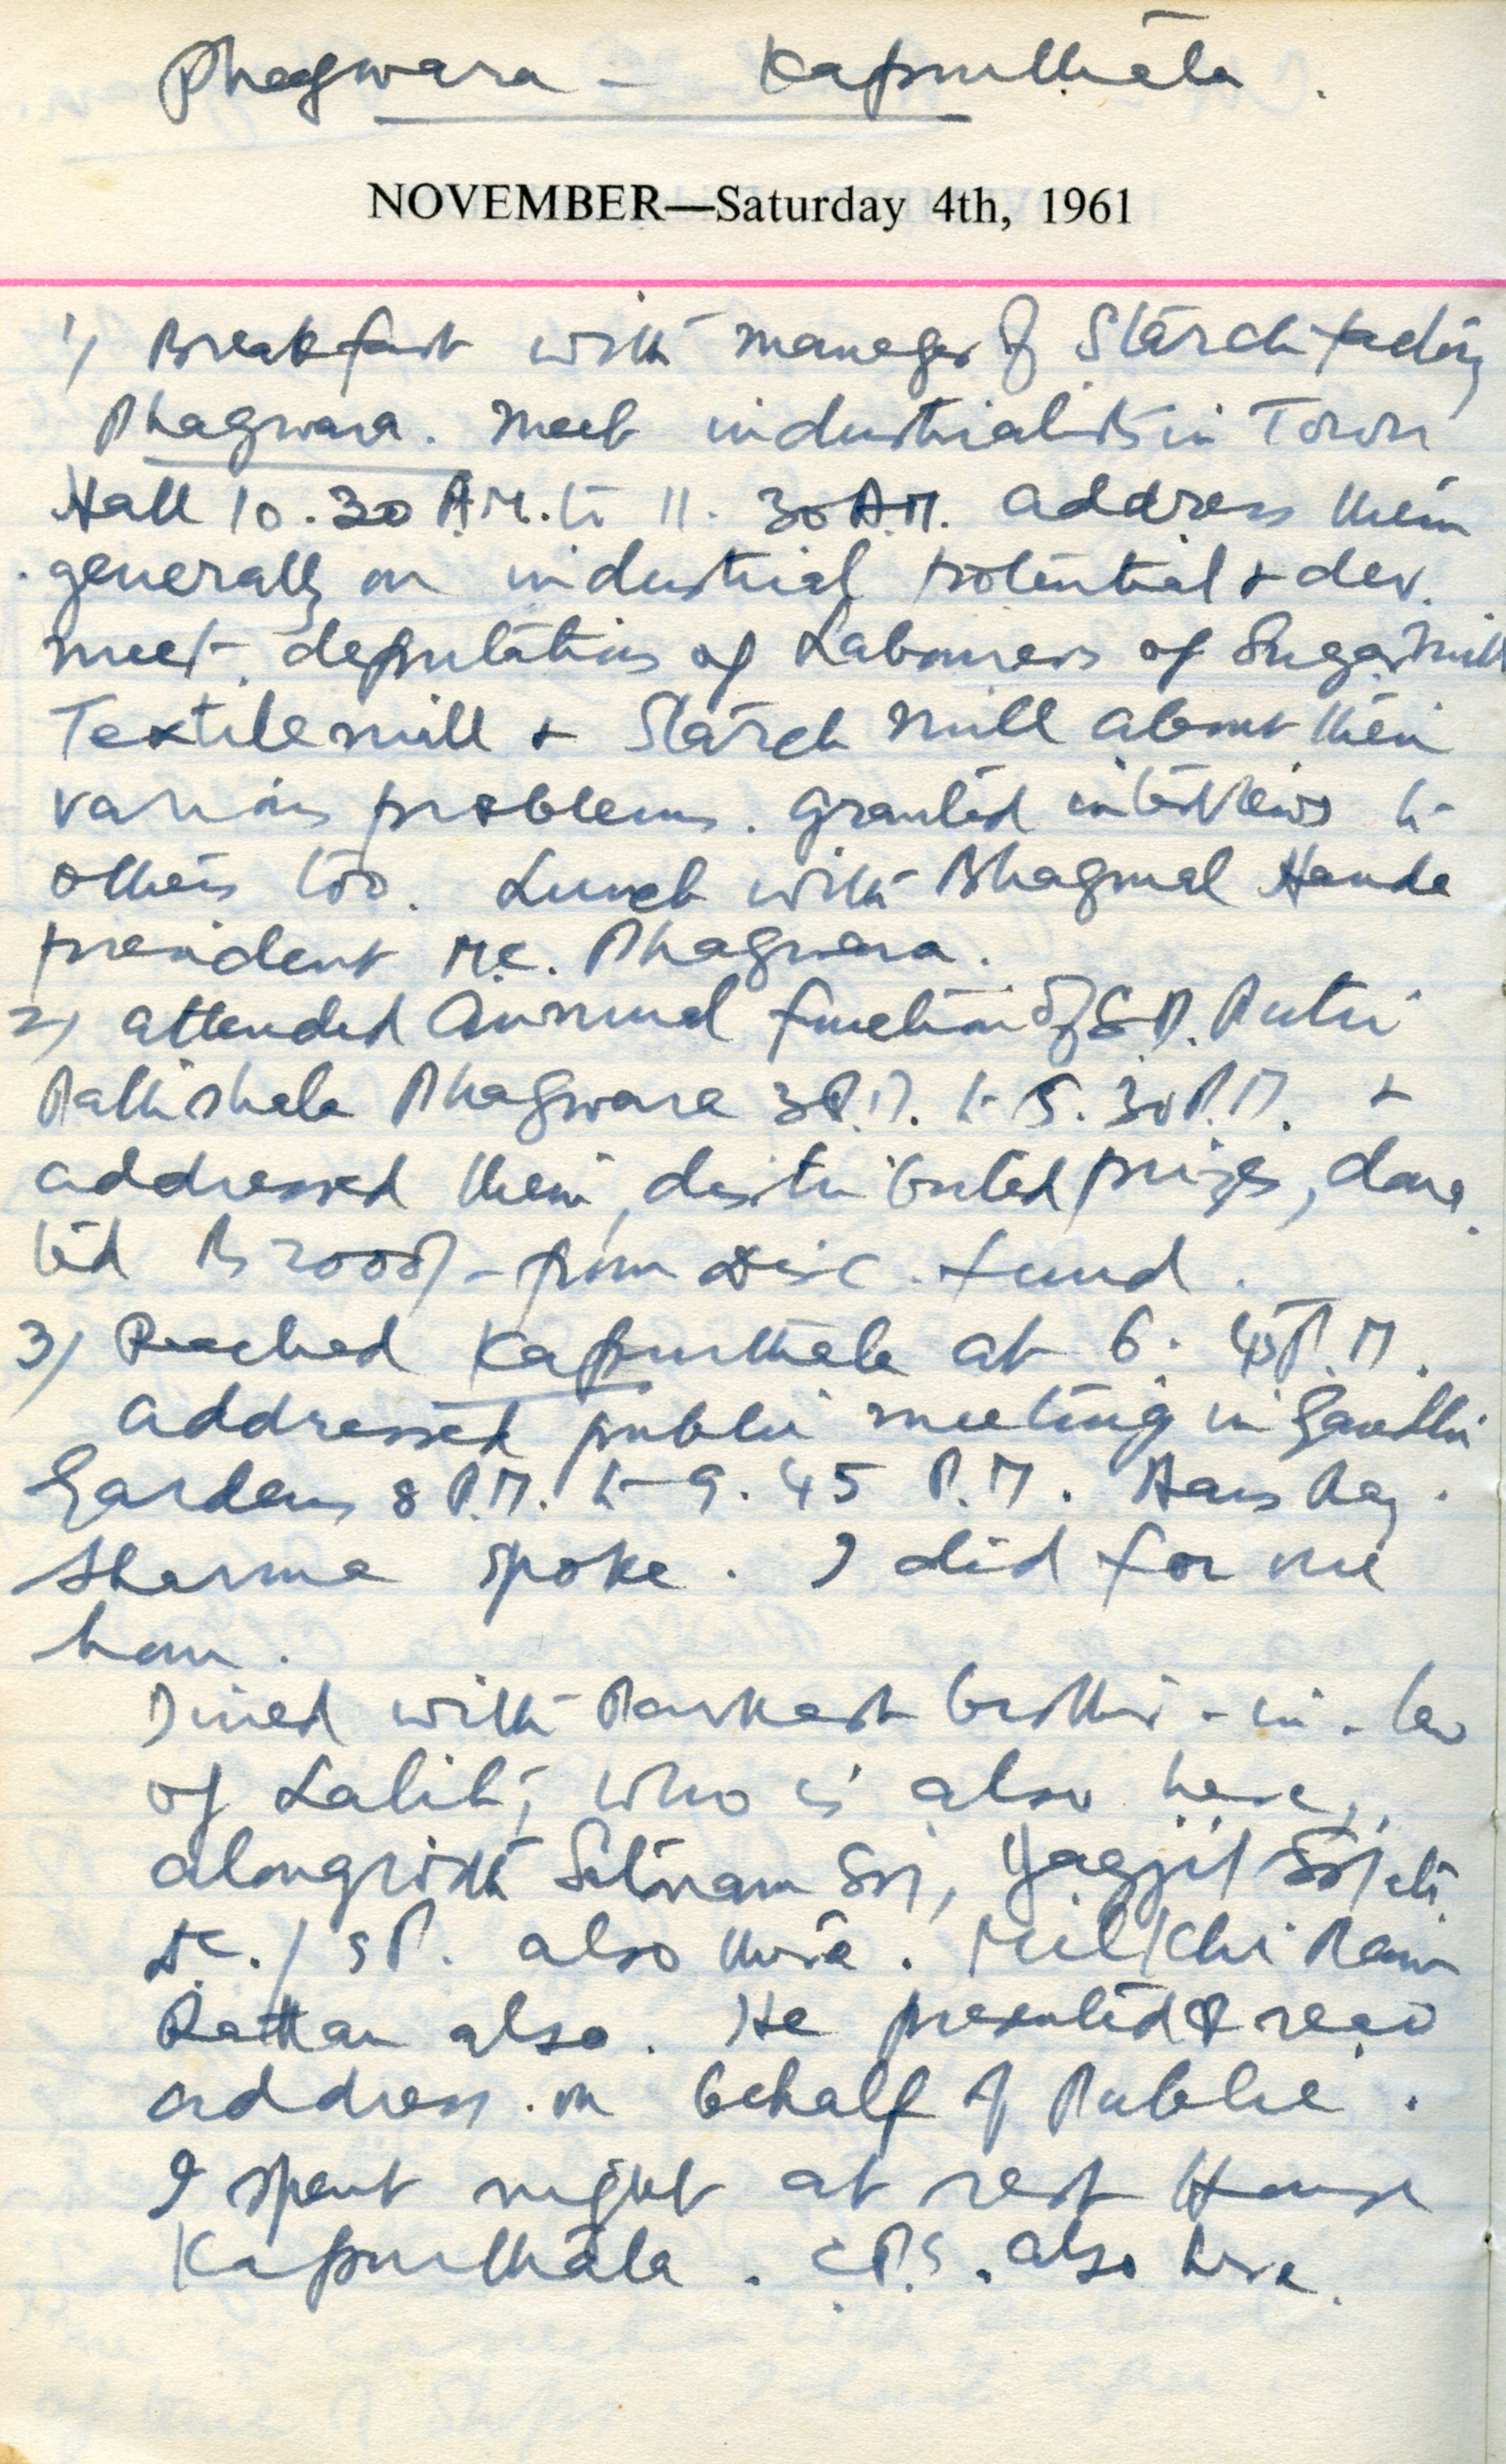 Phagwara - Kapurthala.
NOVEMBER—Saturday 4th, 1961
1) Breakfast with manager of Starch factory
Phagwara. Meet industrialists in Town
Hall 10.30 A.M. to 11.30 A.M. address them
generally on industrial potential & dev.
meet deputations of Labourers of Sugar mill
Textile mill & Starch mill about their
various problems. granted interviews to
others too. Lunch with Bhagmal Handa
president M.C. Phagwara.
2) attended Annual function of S.D. Putri
Pathshala Phagwara 3 P.M. to 5.30 P.M. &
addressed them, distributed prizes, dona
ted Rs 2000/- from Disc. fund.
3) Reached Kapurthala at 6.45 P.M.
addressed public meeting in Gandhi
Gardens 8 P.M. to 9.45 P.M. Hans Raj
Sharma spoke. I did for one
hour.
Dined with brother-in-law
of Lalit, who is also here,
alongwith Satnam Sgh, Jagjit Sgh etc
D.C. / S.P. also there. Milkhi Ram
Rattan also. He presented & read
address on behalf of Public.
I spent night at rest House
Kapurthala. C.P.S. also here.